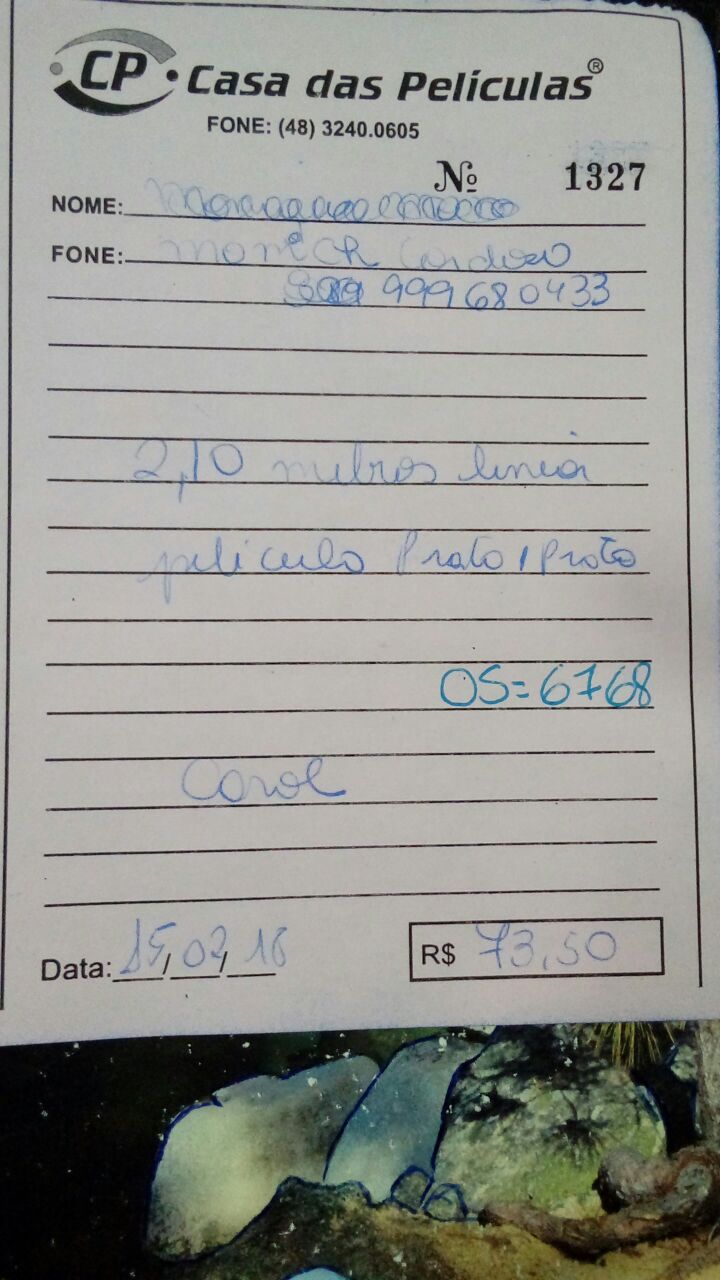 CP • Casa das Películas®
FONE: (48) 3240.0605
Nº 1327
NOME:
FONE: Monich Cardozo
999680433
2,10 metros linear
película Prata/Prata
OS=6768
Carol
Data: 15/02/16 R$ 73,50